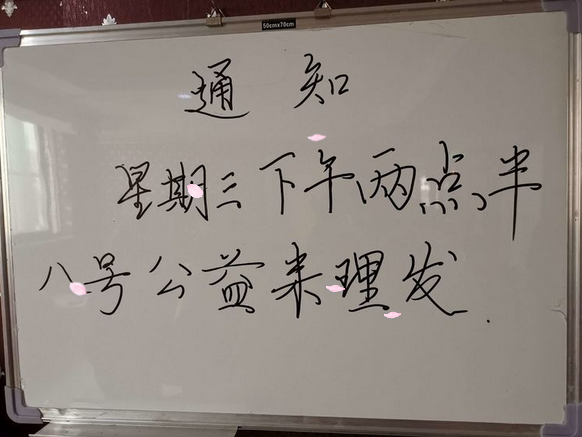 50cmx70cm
通知
星期三下午两点半
八号公益来理发.